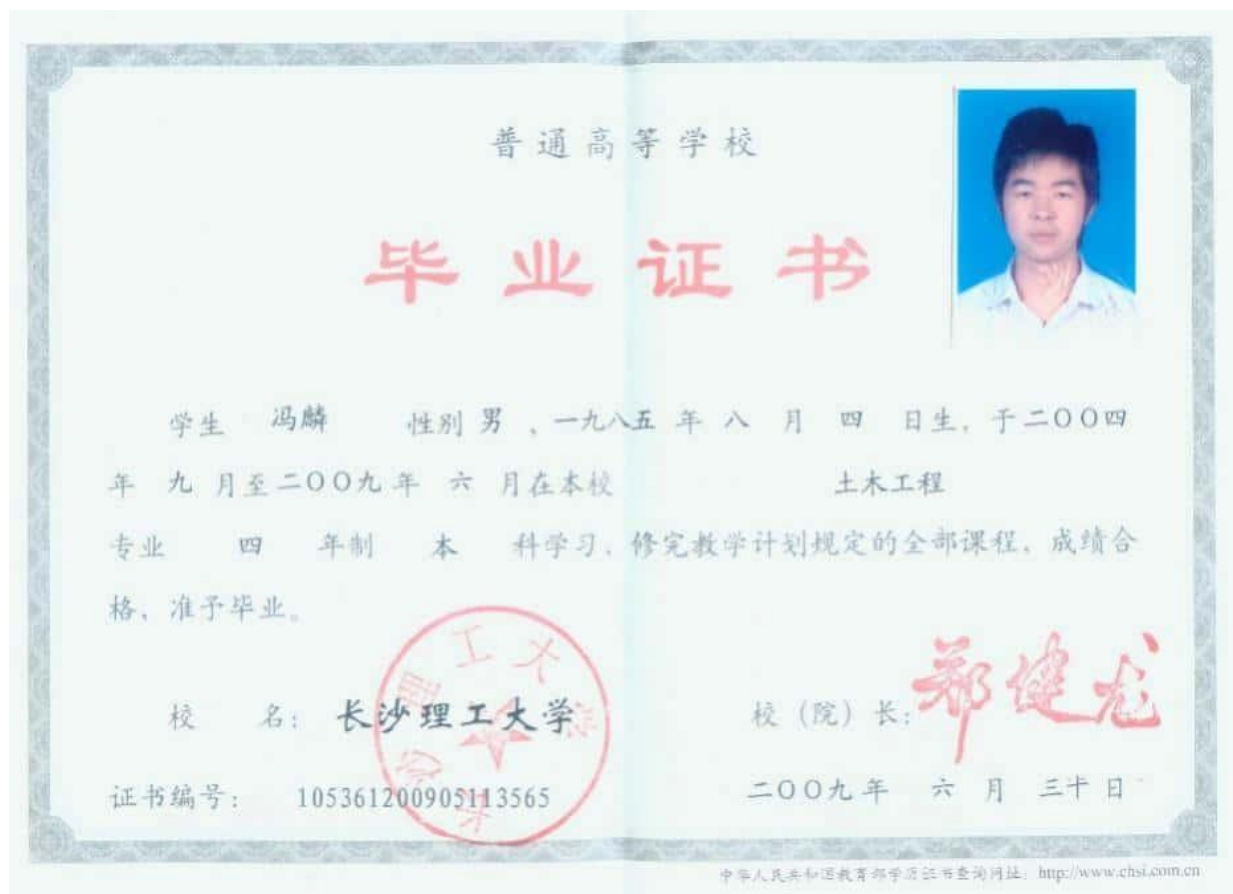 普通高等学校
毕业证书
学生 冯麟 性别 男 、一九八五 年 八 月 四 日生，于二〇〇四
年 九 月至二〇〇九年 六 月在本校 土木工程
专业 四 年制 本 科学习，修完教学计划规定的全部课程，成绩合
格，准予毕业。
长沙理工大学
校 名： 长沙理工大学
校（院）长：郑健龙
证书编号： 105361200905113565
二〇〇九年 六 月 三十 日
中华人民共和国教育部学历证书查询网址：http://www.chsi.com.cn